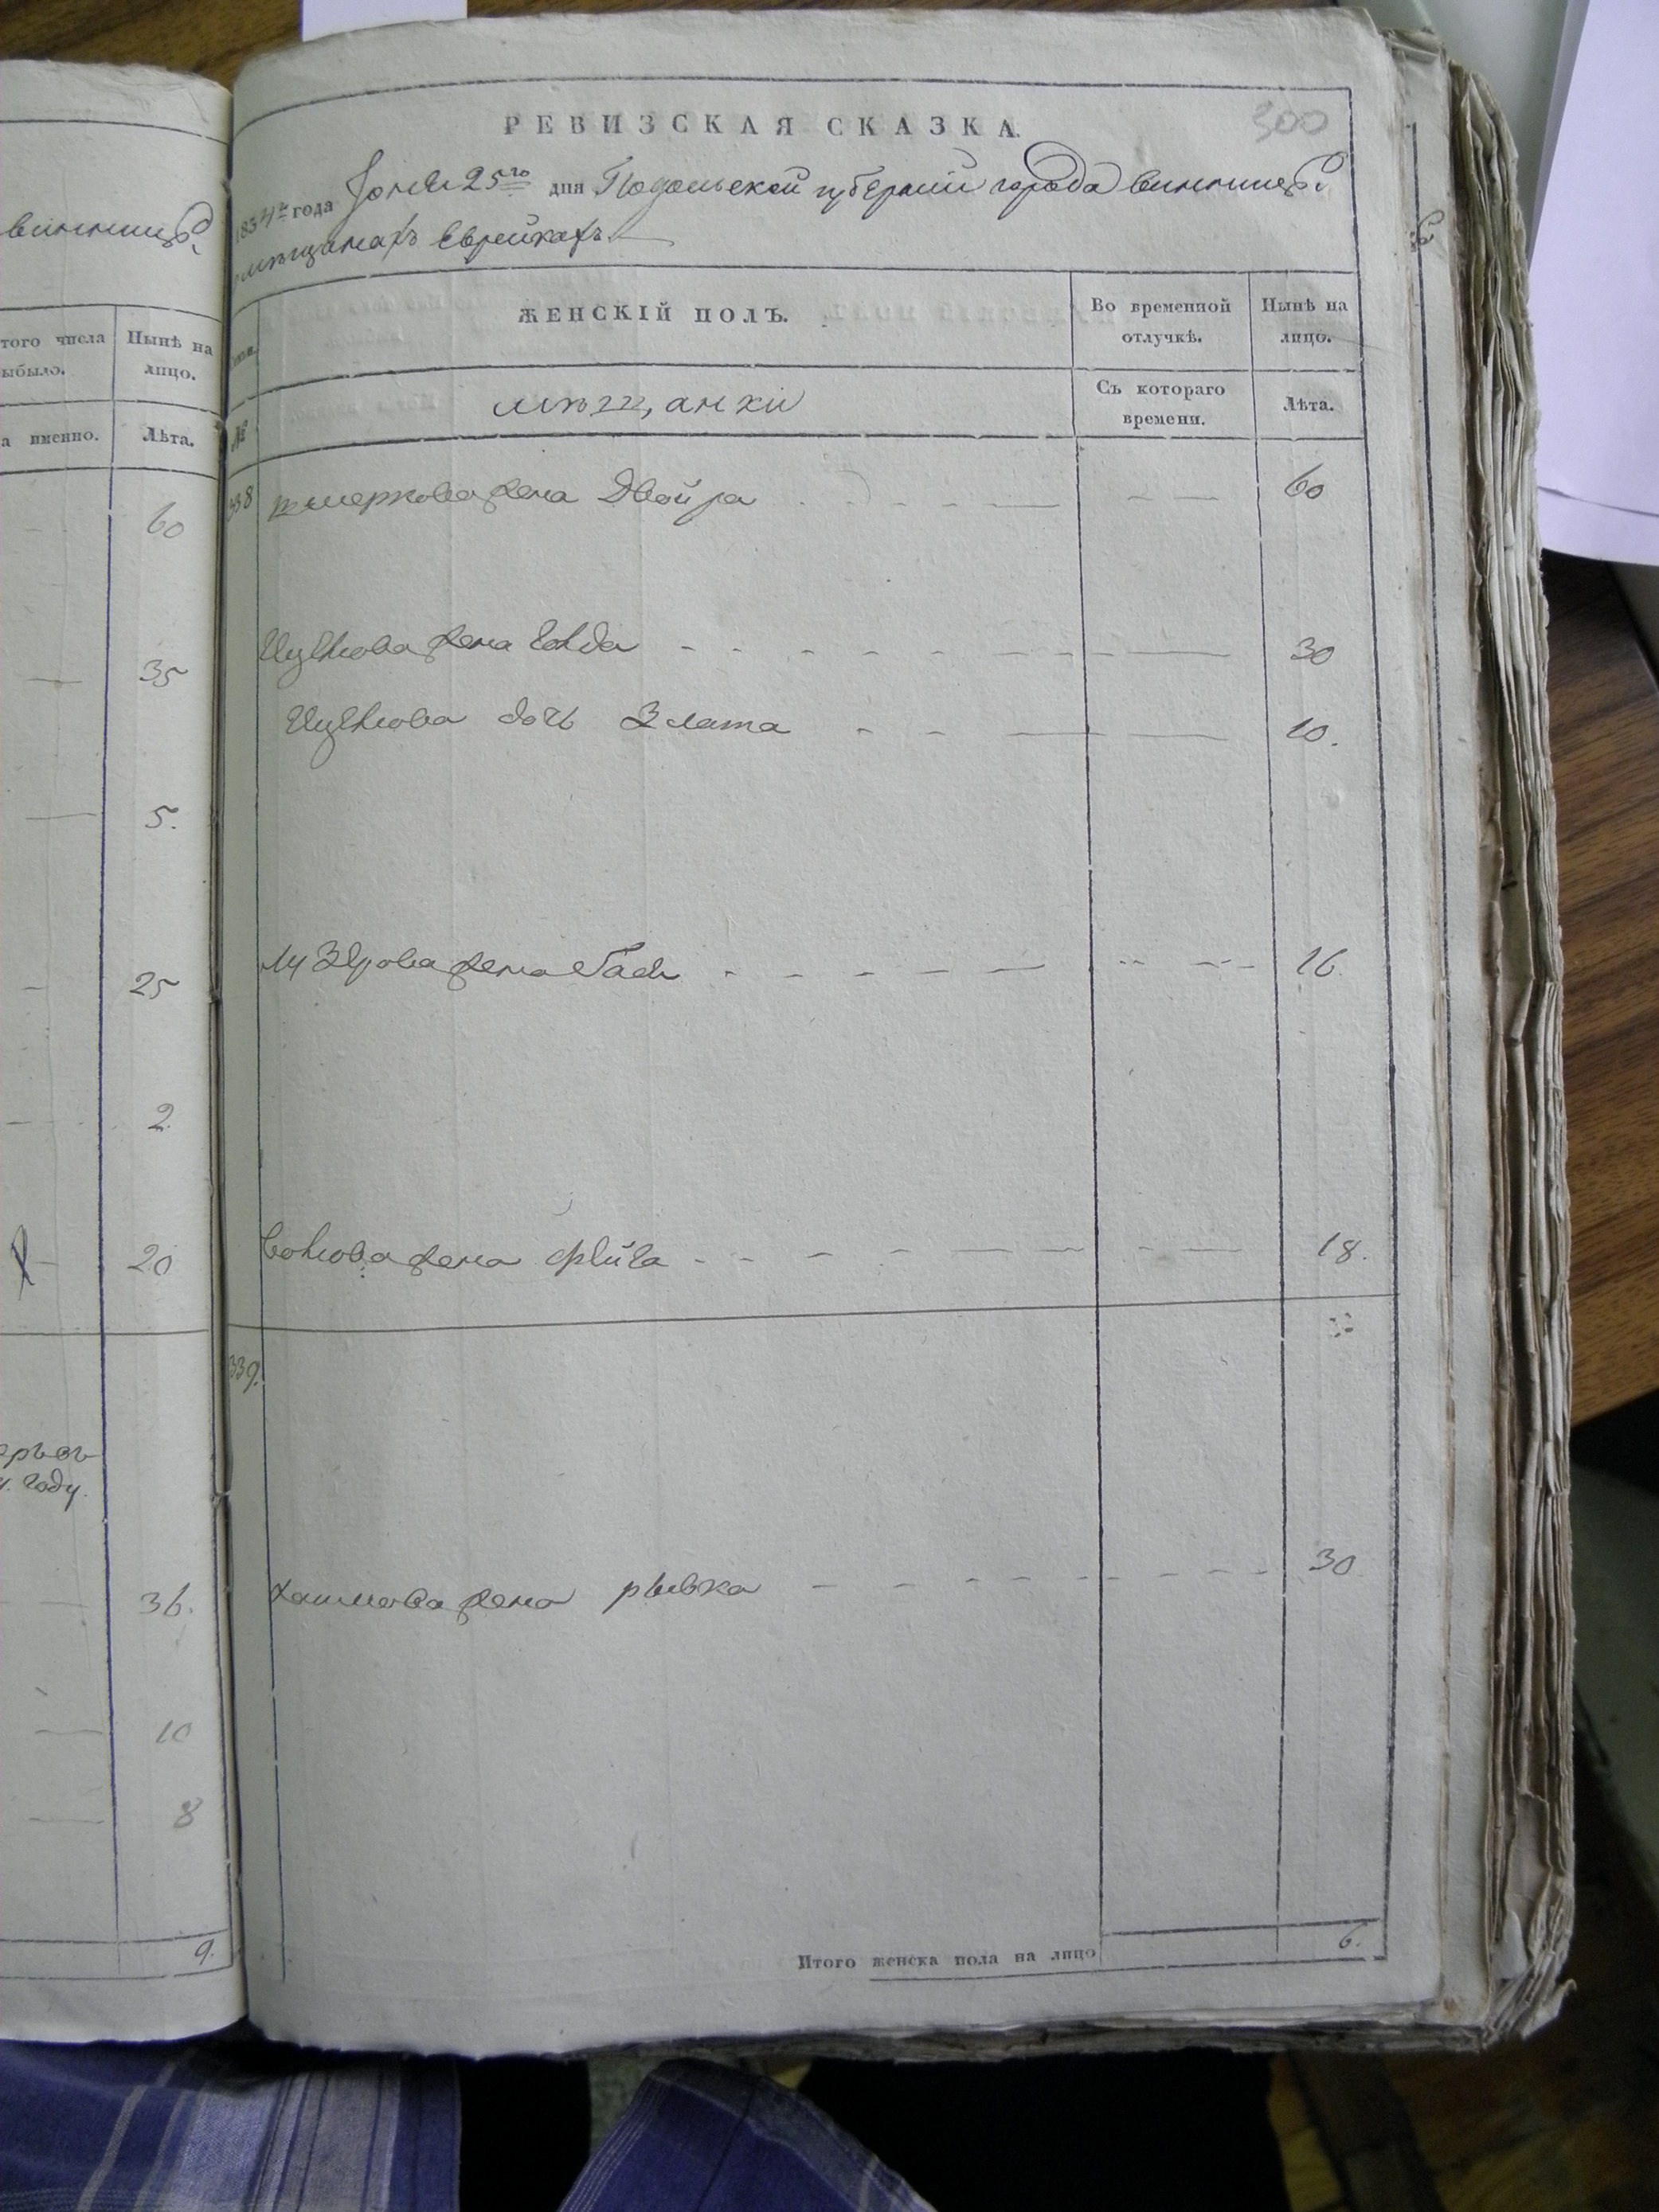 виннице
того числа
ыбыло.
Нынѣ на
лицо.
а именно.
Лѣта.
60
35
5.
25
2
20
году.
36.
10
8
9.
300
РЕВИЗСКАЯ СКАЗКА.
1834го года Июня 25го дня Подольской губернии города Винницы
мещанахъ Еврейкахъ
ЖЕНСКІЙ ПОЛЪ.
Во временной
отлучкѣ.
Нынѣ на
лицо.
№
мещанки
Съ котораго
времени.
Лѣта.
338 шмеркова жена Двойра 60
Ицкова жена 30
Ицкова дочь Злата 10.
жена Бася 16.
жена фейга 18.
339.
жена рывка 30
Итого женска пола на лицо 6.